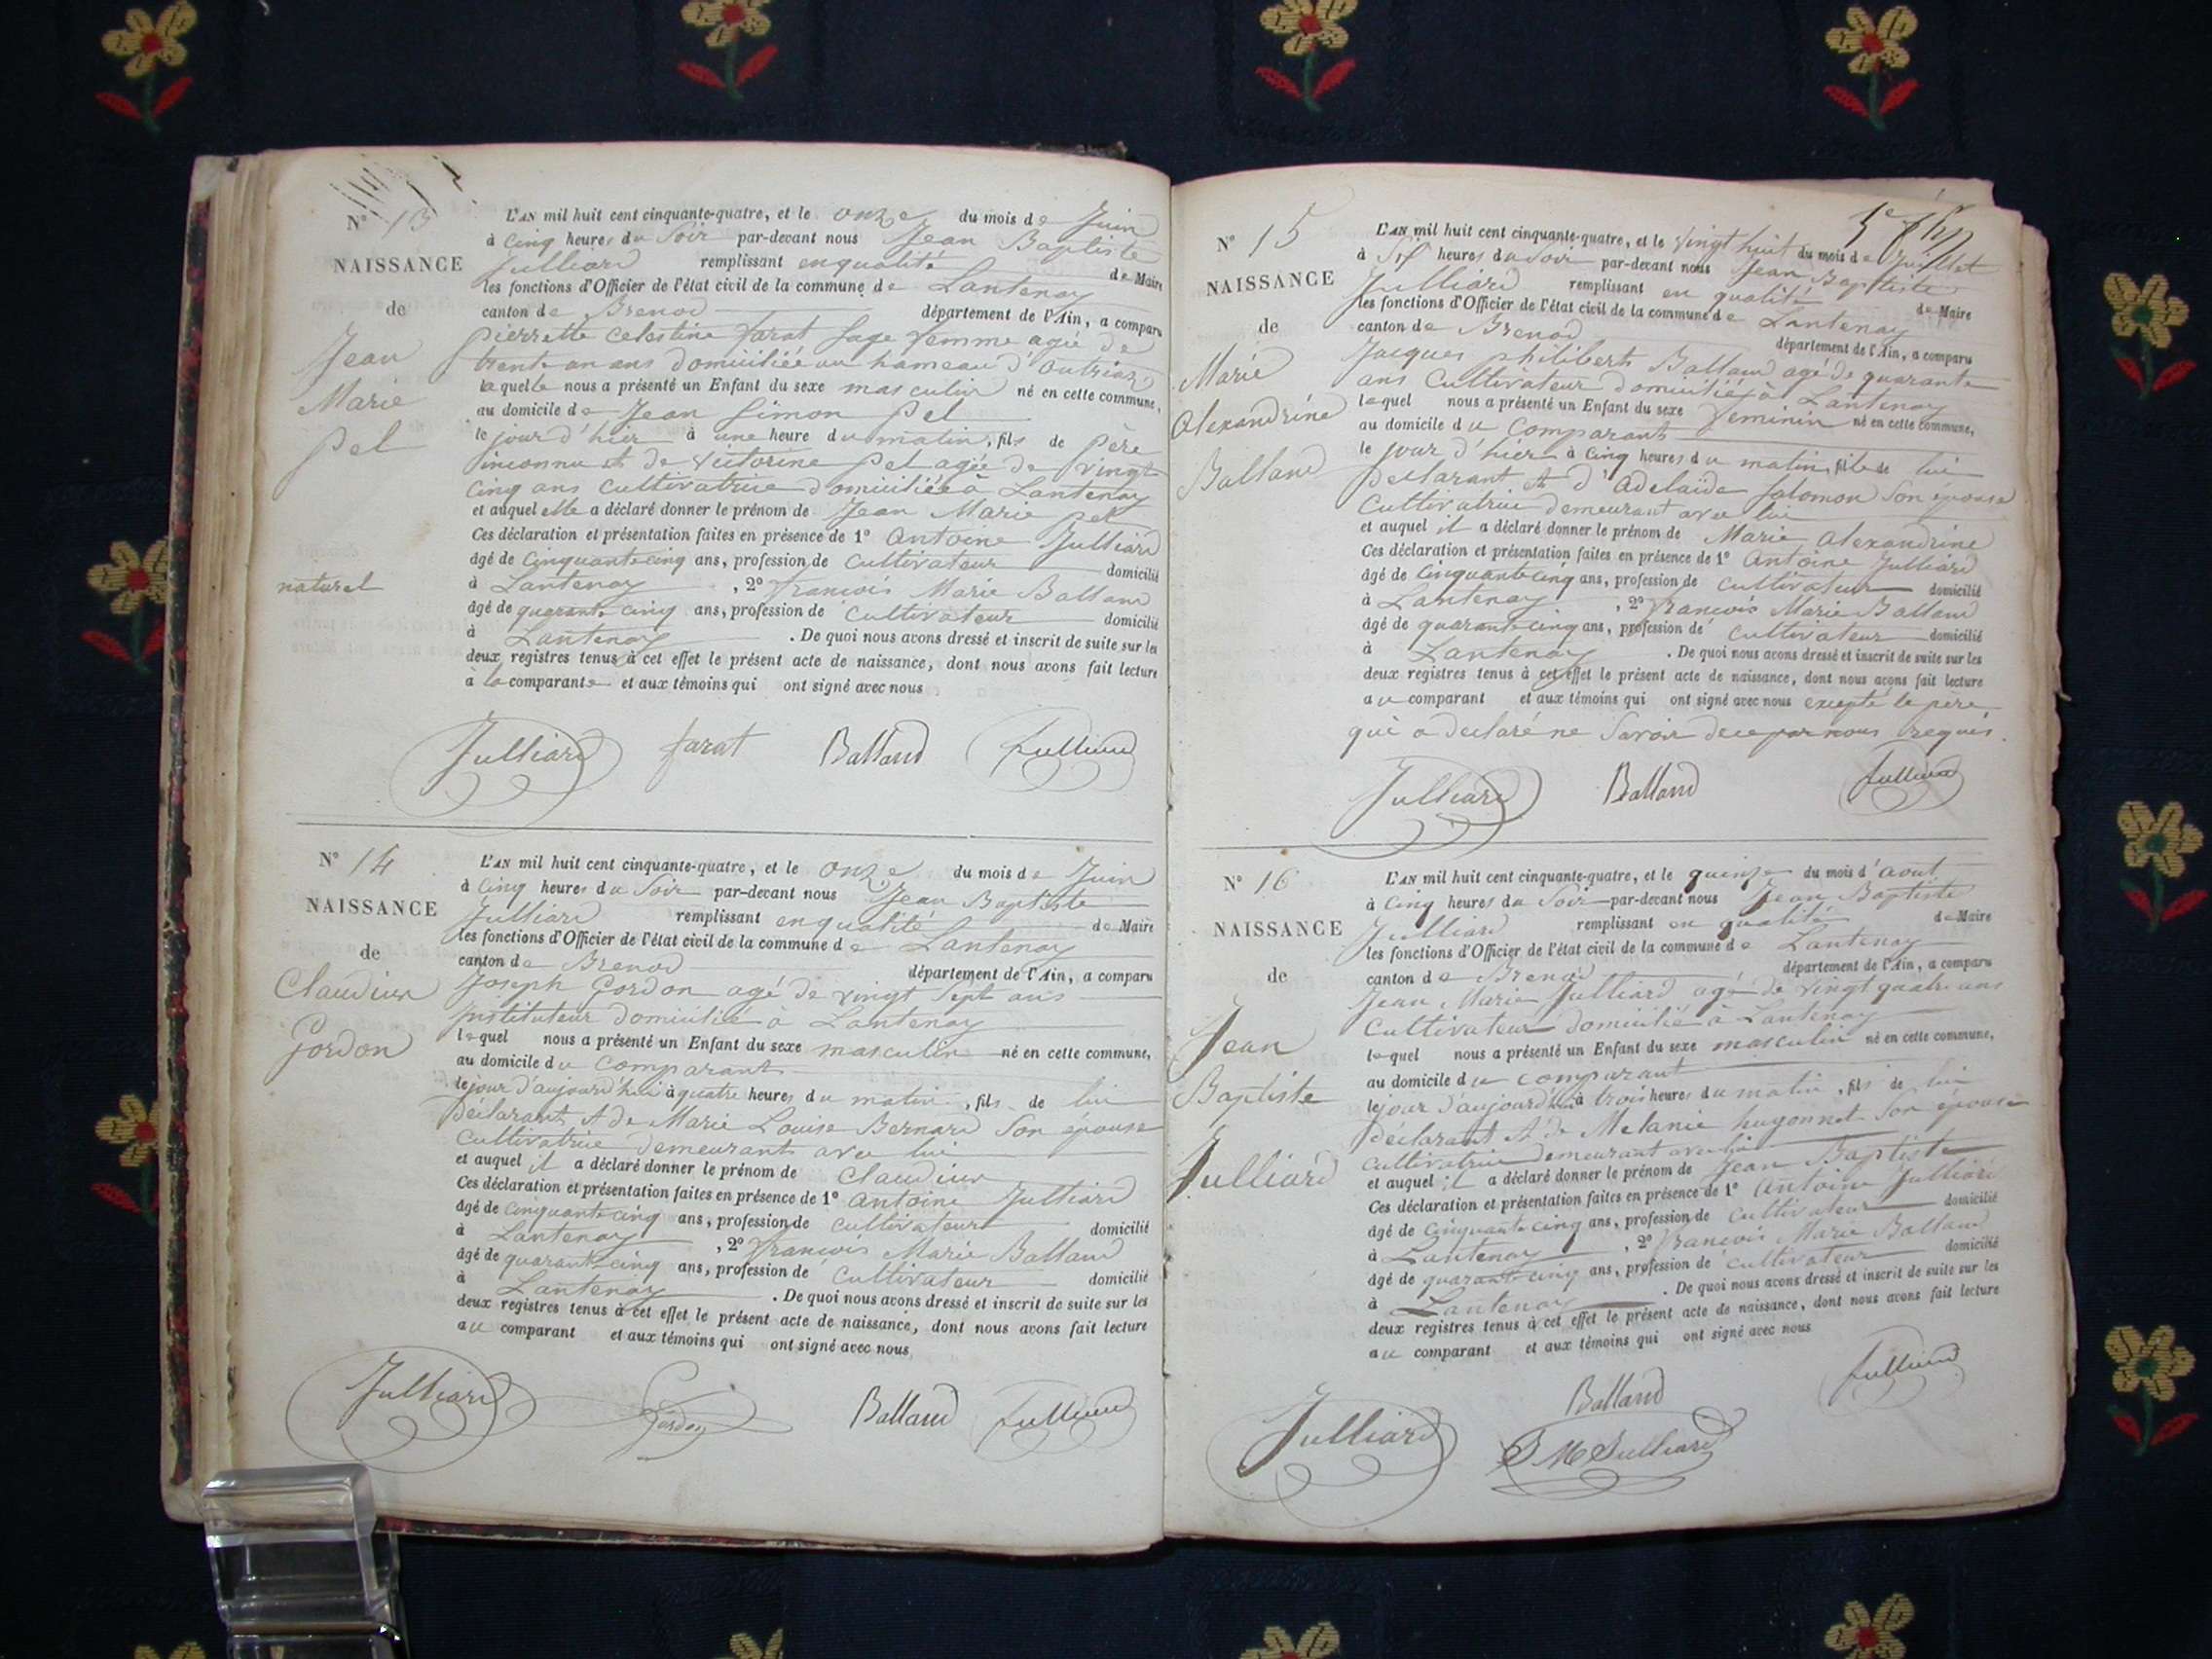 N° 13
NAISSANCE
de
Jean
Marie
Pel
naturel
L'AN mil huit cent cinquante-quatre, et le onze du mois de Juin
à Cinq heures du Soir par-devant nous Jean Baptiste
Julliard remplissant en qualité de Maire
les fonctions d'Officier de l'état civil de la commune de Lantenay
canton de Brenod département de l'Ain, a comparu
pierrette Celestine farat Sage femme agée de
trente un ans domiciliée au hameau d'Outriaz
laquelle nous a présenté un Enfant du sexe masculin né en cette commune,
au domicile de Jean Simon Pel
le jour d'hier à une heure du matin, fils de père
inconnu et de Victorine Pel agée de vingt
cinq ans Cultivatrice domiciliée à Lantenay
et auquel elle a déclaré donner le prénom de Jean Marie Pel
Ces déclaration et présentation faites en présence de 1° Antoine Julliard
âgé de Cinquante cinq ans, profession de Cultivateur domicilié
à Lantenay, 2° françois Marie Balland
âgé de quarante cinq ans, profession de Cultivateur domicilié
à Lantenay. De quoi nous avons dressé et inscrit de suite sur les
deux registres tenus à cet effet le présent acte de naissance, dont nous avons fait lecture
à la comparante et aux témoins qui ont signé avec nous
Julliard farat Balland Julliard
N° 14
NAISSANCE
de
Claudius
Gordon
L'AN mil huit cent cinquante-quatre, et le onze du mois de Juin
à Cinq heures du Soir par-devant nous Jean Baptiste
Julliard remplissant en qualité de Maire
les fonctions d'Officier de l'état civil de la commune de Lantenay
canton de Brenod département de l'Ain, a comparu
Joseph Gordon agé de vingt Sept ans
instituteur domicilié à Lantenay
lequel nous a présenté un Enfant du sexe masculin né en cette commune,
au domicile du comparant
le jour d'aujourd'hui à quatre heures du matin, fils de lui
déclarant et de Marie Louise Bernard Son épouse
Cultivatrice demeurant avec lui
et auquel il a déclaré donner le prénom de Claudius
Ces déclaration et présentation faites en présence de 1° Antoine Julliard
âgé de Cinquante cinq ans, profession de Cultivateur domicilié
à Lantenay, 2° françois Marie Balland
âgé de quarante cinq ans, profession de Cultivateur domicilié
à Lantenay. De quoi nous avons dressé et inscrit de suite sur les
deux registres tenus à cet effet le présent acte de naissance, dont nous avons fait lecture
au comparant et aux témoins qui ont signé avec nous
Julliard Gordon Balland Julliard
N° 15
NAISSANCE
de
Marie
Alexandrine
Balland
L'AN mil huit cent cinquante-quatre, et le vingt huit du mois de Juillet
à Six heures du Soir par-devant nous Jean Baptiste
Julliard remplissant en qualité de Maire
les fonctions d'Officier de l'état civil de la commune de Lantenay
canton de Brenod département de l'Ain, a comparu
Jacques philibert Balland agé de quarante
ans Cultivateur domicilié à Lantenay
lequel nous a présenté un Enfant du sexe feminin né en cette commune,
au domicile du Comparant
le jour d'hier à Cinq heures du matin, fille de lui
déclarant et d'Adelaïde Salomon Son épouse
Cultivatrice demeurant avec lui
et auquel il a déclaré donner le prénom de Marie Alexandrine
Ces déclaration et présentation faites en présence de 1° Antoine Julliard
âgé de Cinquante cinq ans, profession de Cultivateur domicilié
à Lantenay, 2° françois Marie Balland
âgé de quarante cinq ans, profession de Cultivateur domicilié
à Lantenay. De quoi nous avons dressé et inscrit de suite sur les
deux registres tenus à cet effet le présent acte de naissance, dont nous avons fait lecture
au comparant et aux témoins qui ont signé avec nous excepté le père
qui a déclaré ne Savoir de ce par nous requis.
Julliard Balland Julliard
N° 16
NAISSANCE
de
Jean
Baptiste
Julliard
L'AN mil huit cent cinquante-quatre, et le quinze du mois d'août
à Cinq heures du Soir par-devant nous Jean Baptiste
Julliard remplissant en qualité de Maire
les fonctions d'Officier de l'état civil de la commune de Lantenay
canton de Brenod département de l'Ain, a comparu
Jean Marie Julliard agé de vingt quatre ans
Cultivateur domicilié à Lantenay
lequel nous a présenté un Enfant du sexe masculin né en cette commune,
au domicile du comparant
le jour d'aujourd'hui à trois heures du matin, fils de lui
déclarant et de Melanie hugonnet Son épouse
Cultivatrice demeurant avec lui
et auquel il a déclaré donner le prénom de Jean Baptiste
Ces déclaration et présentation faites en présence de 1° Antoine Julliard
âgé de Cinquante cinq ans, profession de Cultivateur domicilié
à Lantenay, 2° françois Marie Balland
âgé de quarante cinq ans, profession de Cultivateur domicilié
à Lantenay. De quoi nous avons dressé et inscrit de suite sur les
deux registres tenus à cet effet le présent acte de naissance, dont nous avons fait lecture
au comparant et aux témoins qui ont signé avec nous
Julliard Balland Julliard
J M Julliard